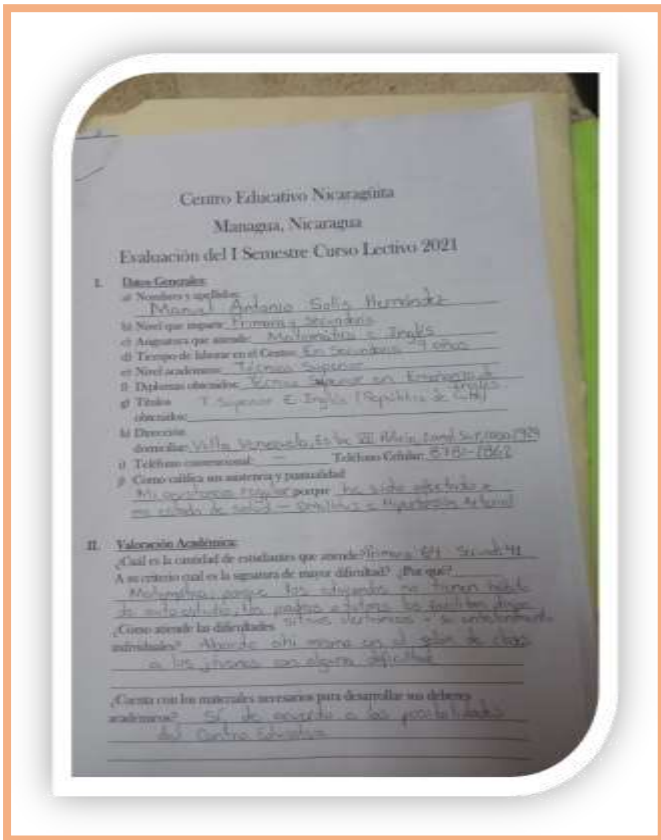 Centro Educativo Nicaragüita
Managua, Nicaragua
Evaluación del I Semestre Curso Lectivo 2021
I. Datos Generales:
a) Nombres y apellidos:
Manuel Antonio Solís Hernández
b) Nivel que imparte: Primaria y Secundaria
c) Asignatura que atiende: Matemática e Inglés
d) Tiempo de laborar en el Centro: En Secundaria 9 años
e) Nivel académico: Técnico Superior
f) Diplomas obtenidos: Técnico Superior en Enseñanza de Inglés
g) Títulos T. Superior E. Inglés (República de
obtenidos:
h) Dirección
domiciliar: Villa Venezuela, Est
i) Teléfono convencional: — Teléfono Celular: 8781-
j) Como califica sus asistencia y puntualidad
Mi asistencia regular porque ha sido afectado
mi estado de salud — Hipertensión Arterial
II. Valoración Académica:
¿Cuál es la cantidad de estudiantes que atiende? Primaria 64 Secund. 41
A su criterio cual es la signatura de mayor dificultad? ¿Por qué?
Matemática, porque los educandos no tienen hábito
de autoestudio, los padres o tutores les
¿Como atiende las dificultades
individuales? Abordo ahí mismo en el salón de clases
a los jóvenes con alguna dificultad
¿Cuenta con los materiales necesarios para desarrollar sus deberes
académicos? Sí, de acuerdo a las posibilidades
del Centro Educativo